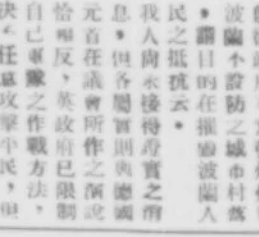 波蘭不設防之城市村落
，謂目的在摧毀波蘭人
民之抵抗云。
我人尚未接得證實之消
息，但各閣首則與德國
元首在議會所作之演說
恰相反，英政府已限制
自己軍隊之作戰方法，
決不任意攻擊平民，但